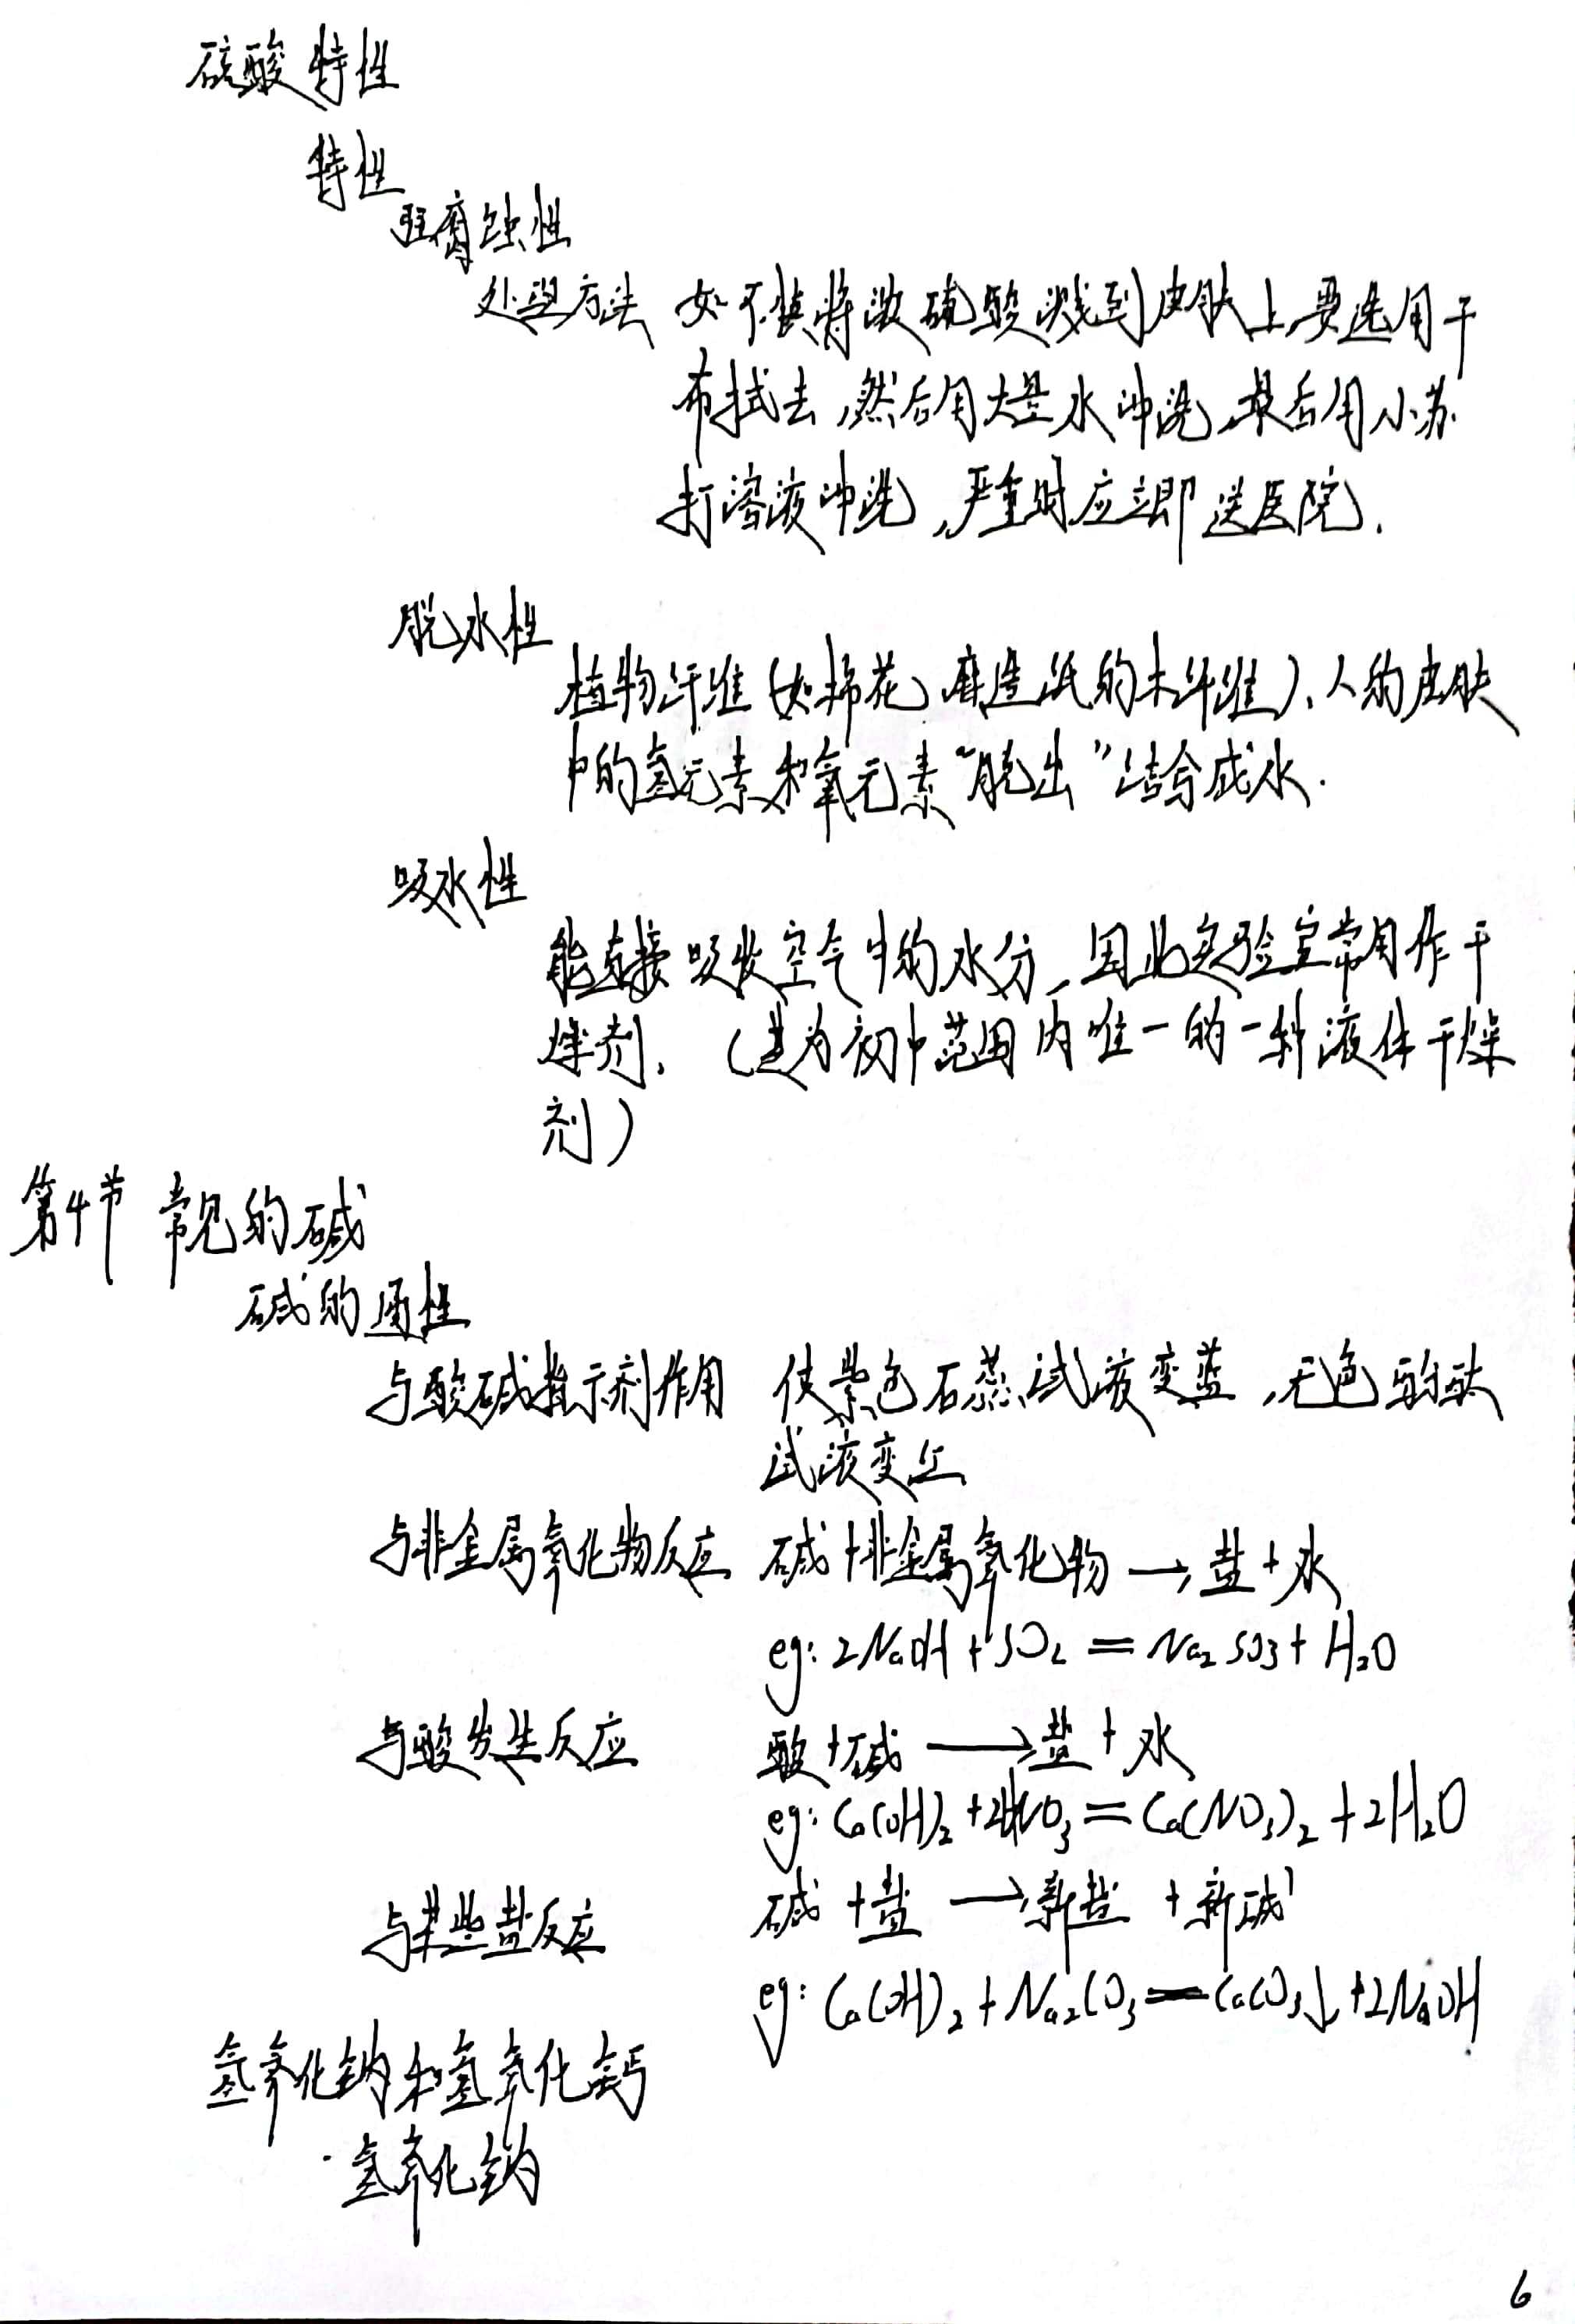 硫酸特性
特性
强腐蚀性
处理方法 如不慎将浓硫酸溅到皮肤上,要先用干
布拭去,然后用大量水冲洗,最后用小苏
打溶液冲洗,严重时应立即送医院.
脱水性
植物纤维(如棉花、麻造纸的木纤维)、人的皮肤
中的氢元素和氧元素“脱出”结合成水.
吸水性
能直接吸收空气中的水分,因此实验室常用作干
燥剂。(其为初中范围内唯一的一种液体干燥
剂)
第4节 常见的碱
碱的通性
与酸碱指示剂作用 使紫色石蕊试液变蓝,无色酚酞
试液变红
与非金属氧化物反应 碱+非金属氧化物→盐+水
eg: 2NaOH+SO₂=Na₂SO₃+H₂O
与酸发生反应 酸+碱→盐+水
eg: Ca(OH)₂+2HNO₃=Ca(NO₃)₂+2H₂O
与某些盐反应 碱+盐→新盐+新碱
eg: Ca(OH)₂+Na₂CO₃=CaCO₃↓+2NaOH
氢氧化钠和氢氧化钙
氢氧化钠
6